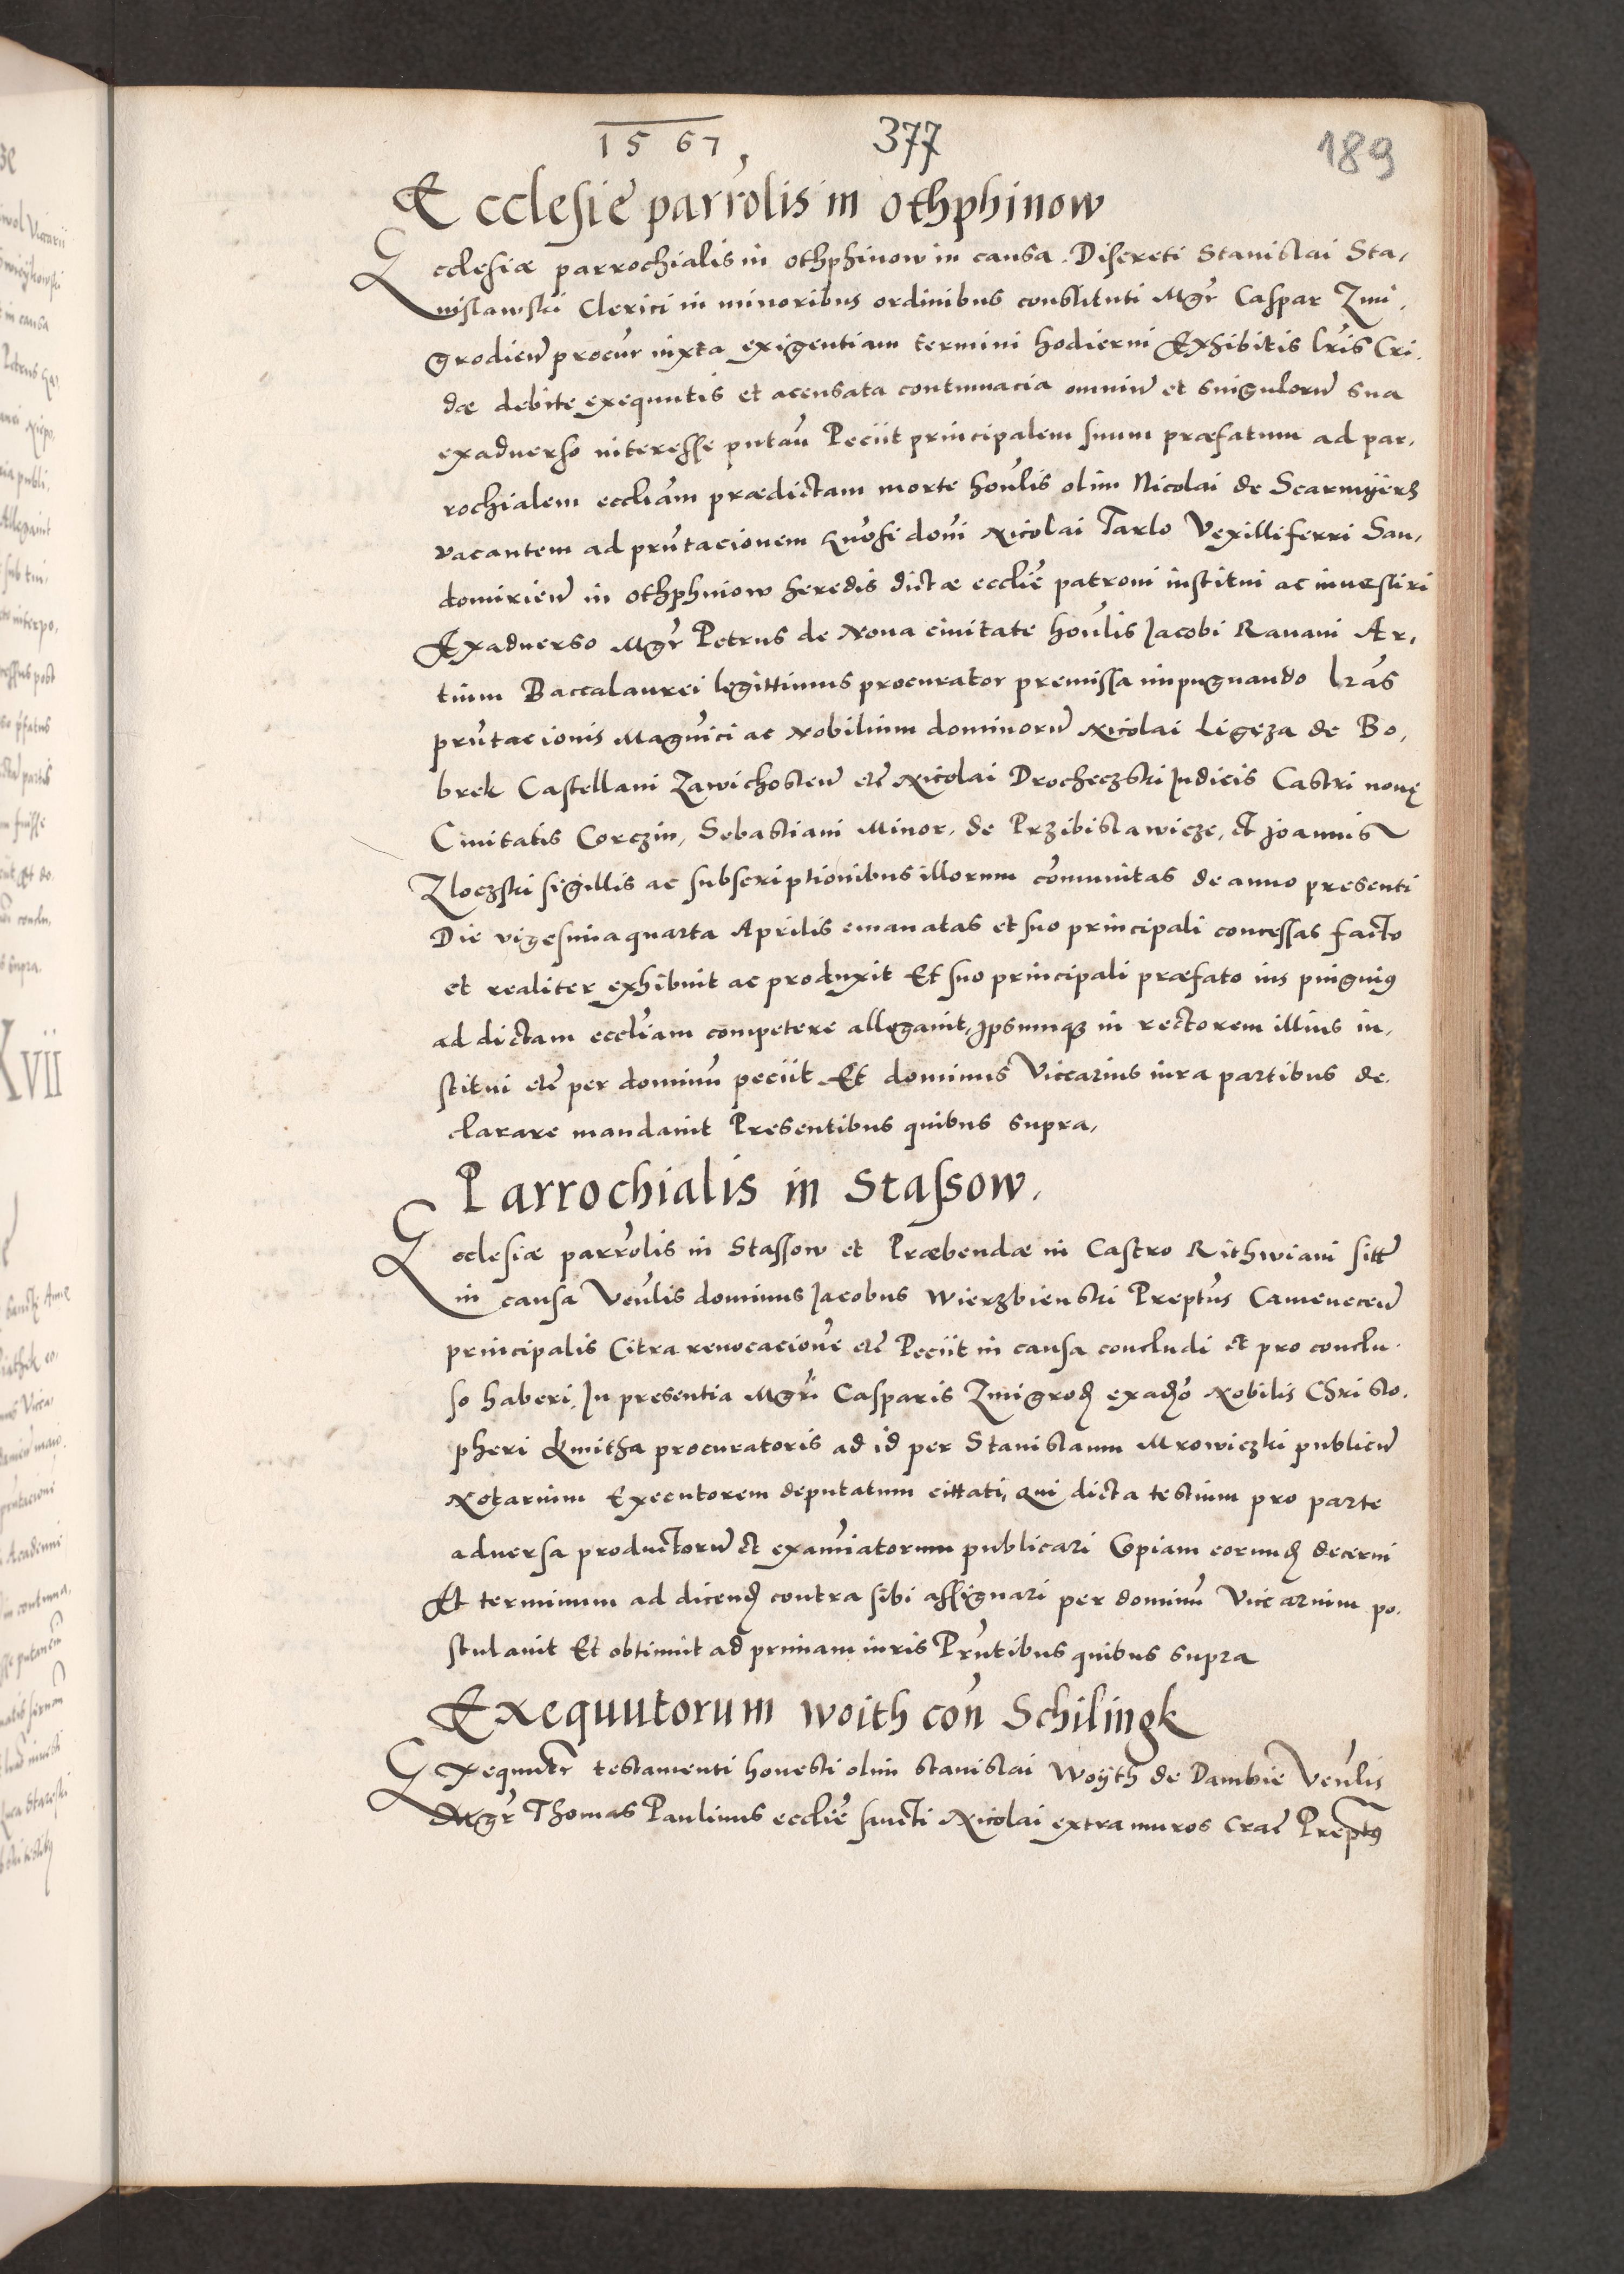 1567, 377 189
Ecclesiæ parrolis in Othphinow
Ecclesiæ parrochialis in Othphinow in causa. Discreti Stanislai Sta,
nislawski Clerici in minoribus ordinibus constituti Mgr Caspar Zmi,
grodien procur iuxta exigentiam termini hodierni Exhibitis lris Cri,
dæ debite exequutis et acensata contumacia omniu et singuloru sua
exaduerso interesse putan Peciit principalem suum præfatum ad par,
rochialem eccliam prædictam morte honlis olim Nicolai de Scarmÿerz
vacantem ad pruntacionem Gnosi doni Nicolai Tarlo Vexilliferri San,
domirien in Othphniow heredis dictæ ecclie patroni institui ac inuestiri
Exaduerso Mgr Petrus de Noua ciuitate honlis Jacobi Rauani Ar,
tium Baccalaurei legittimus procurator premissa impugnando lras
prntacionis Magnici ac Nobilium dominoru Nicolai Ligeza de Bo,
brek Castellani Zawichosten etc Nicolai Drocheczski Judicis Castri nouę
Ciuitatis Corczin, Sebastiani Minor, de Przibislawicze, et Joannis
Zloczski sigillis ac subscriptionibus illorum comunitas de anno presenti
Die vigesima quarta Aprilis emanatas et suo principali concessas facto
et realiter exhibuit ac produxit Et suo principali præfato ius pinguius
ad dictam eccliam competere allegauit, Ipsumque in rectorem illius in,
stitui etc per dominu peciit Et dominus Viccarius iura partibus de,
clarare mandauit Presentibus quibus supra,
Parrochialis in Stassow.
Ecclesiæ parrolis in Stassow et Præbendæ in Castro Rithwiani sitt
in causa Venlis dominus Jacobus Wierzbienski Preptus Camenecen
principalis Citra reuocacione etc Peciit in causa concludi et pro conclu,
so haberi, In presentia Mgri Casparis Zmigrod exaduo Nobilis Christo,
pheri Kmitha procuratoris ad id per Stanislaum Mrowiczki publicu
Notarium Executorem deputatum cittati, Qui dicta testium pro parte
aduersa productoru et examinatorum publicari Copiam eorund decerni
Et terminum ad dicend contra sibi assignari per dominu Viccarium po,
stulauit Et obtinuit ad primam iuris Prntibus quibus supra
Exequutorum Woith con Schilingk
Exequutr testamenti honesti olim Stanislai Woÿth de Dambie Venlis
Mgr Thomas Paulinus ecclie sancti Nicolai extra muros Crac Preptus